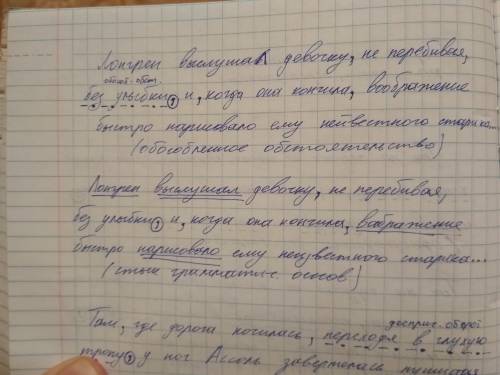 Лонгрен выслушал девочку, не перебивая,
обосоп. обст.
без улыбки① и, когда она кончила, воображение
быстро нарисовало ему неизвестного старика...
(обособленное обстоятельство)
Лонгрен выслушал девочку, не перебивая,
без улыбки① и, когда она кончила, воображение
быстро нарисовало ему неизвестного старика...
(стык грамматич-с основ)
дееприч. оборот
Там, где дорога кончилась, переходя в глухую
тропу① у ног Ассоль завертелась пушистая